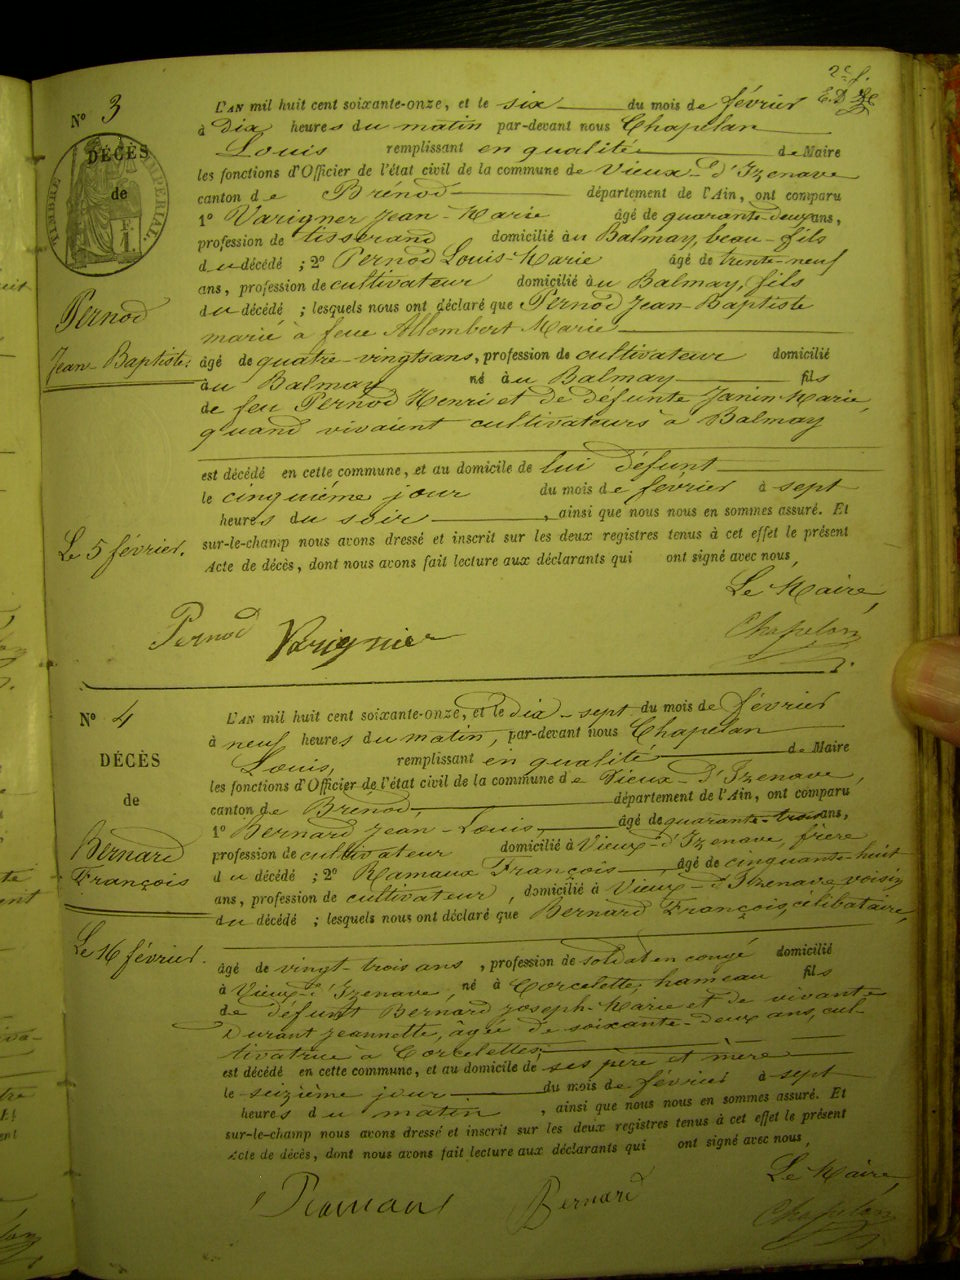 2e f.
N° 3
DÉCÈS
de
TIMBRE IMPÉRIAL
1 F.
Pernod
Jean-Baptiste.
Le 5 février.
L'AN mil huit cent soixante-onze, et le six du mois de février
à dix heures du matin par-devant nous Chapelan
Louis remplissant en qualité de Maire
les fonctions d'Officier de l'état civil de la commune de Vieux-d'Izenave
canton de Brénod département de l'Ain, ont comparu
1° Varignier Jean-Marie âgé de quarante-deux ans,
profession de tisserand domicilié au Balmay, beau-fils
du décédé ; 2° Pernod Louis-Marie âgé de trente-neuf
ans, profession de cultivateur domicilié au Balmay, fils
du décédé ; lesquels nous ont déclaré que Pernod Jean-Baptiste
marié à feue Allombert Marie
âgé de quatre-vingts ans, profession de cultivateur domicilié
au Balmay né au Balmay fils
de feu Pernod Henri et de défunte Janin Marie,
quand vivaient cultivateurs à Balmay
est décédé en cette commune, et au domicile de lui défunt
le cinquième jour du mois de février à sept
heures du soir, ainsi que nous nous en sommes assuré. Et
sur-le-champ nous avons dressé et inscrit sur les deux registres tenus à cet effet le présent
Acte de décès, dont nous avons fait lecture aux déclarants qui ont signé avec nous,
Le Maire,
Pernod Varignier Chapelan
N° 4
DÉCÈS
de
Bernard
François
Le 16 février.
L'AN mil huit cent soixante-onze, et le dix-sept du mois de février
à neuf heures du matin, par-devant nous Chapelan
Louis, remplissant en qualité de Maire
les fonctions d'Officier de l'état civil de la commune de Vieux-d'Izenave,
canton de Brénod, département de l'Ain, ont comparu
1° Bernard Jean-Louis, âgé de quarante-trois ans,
profession de cultivateur domicilié à Vieux-d'Izenave, frère
du décédé ; 2° Ramaux François, âgé de cinquante-huit
ans, profession de cultivateur, domicilié à Vieux-d'Izenave, voisin
du décédé ; lesquels nous ont déclaré que Bernard François, célibataire,
âgé de vingt-trois ans, profession de soldat en congé domicilié
à Vieux-d'Izenave, né à Corcelette, hameau fils
de défunt Bernard Joseph-Marie et de vivante
Durant Jeannette, âgée de soixante-deux ans, cul-
tivatrice à Corcelettes,
est décédé en cette commune, et au domicile de ses père et mère
le seizième jour du mois de février à sept
heures du matin, ainsi que nous nous en sommes assuré. Et
sur-le-champ nous avons dressé et inscrit sur les deux registres tenus à cet effet le présent
Acte de décès, dont nous avons fait lecture aux déclarants qui ont signé avec nous,
Le Maire,
Bernard Chapelan